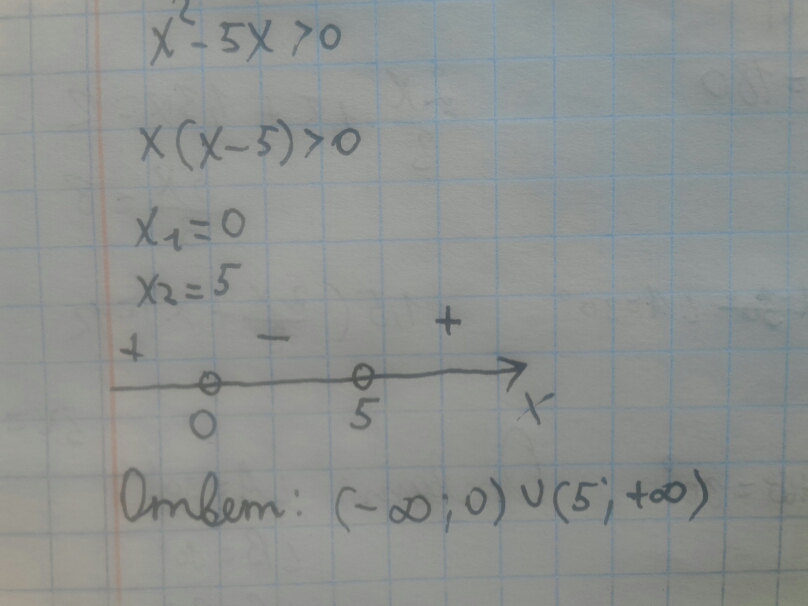 x² - 5x > 0
x(x-5) > 0
x₁ = 0
x₂ = 5
+ − +
0 5 x
Ответ: (-∞; 0) ∪ (5; +∞)